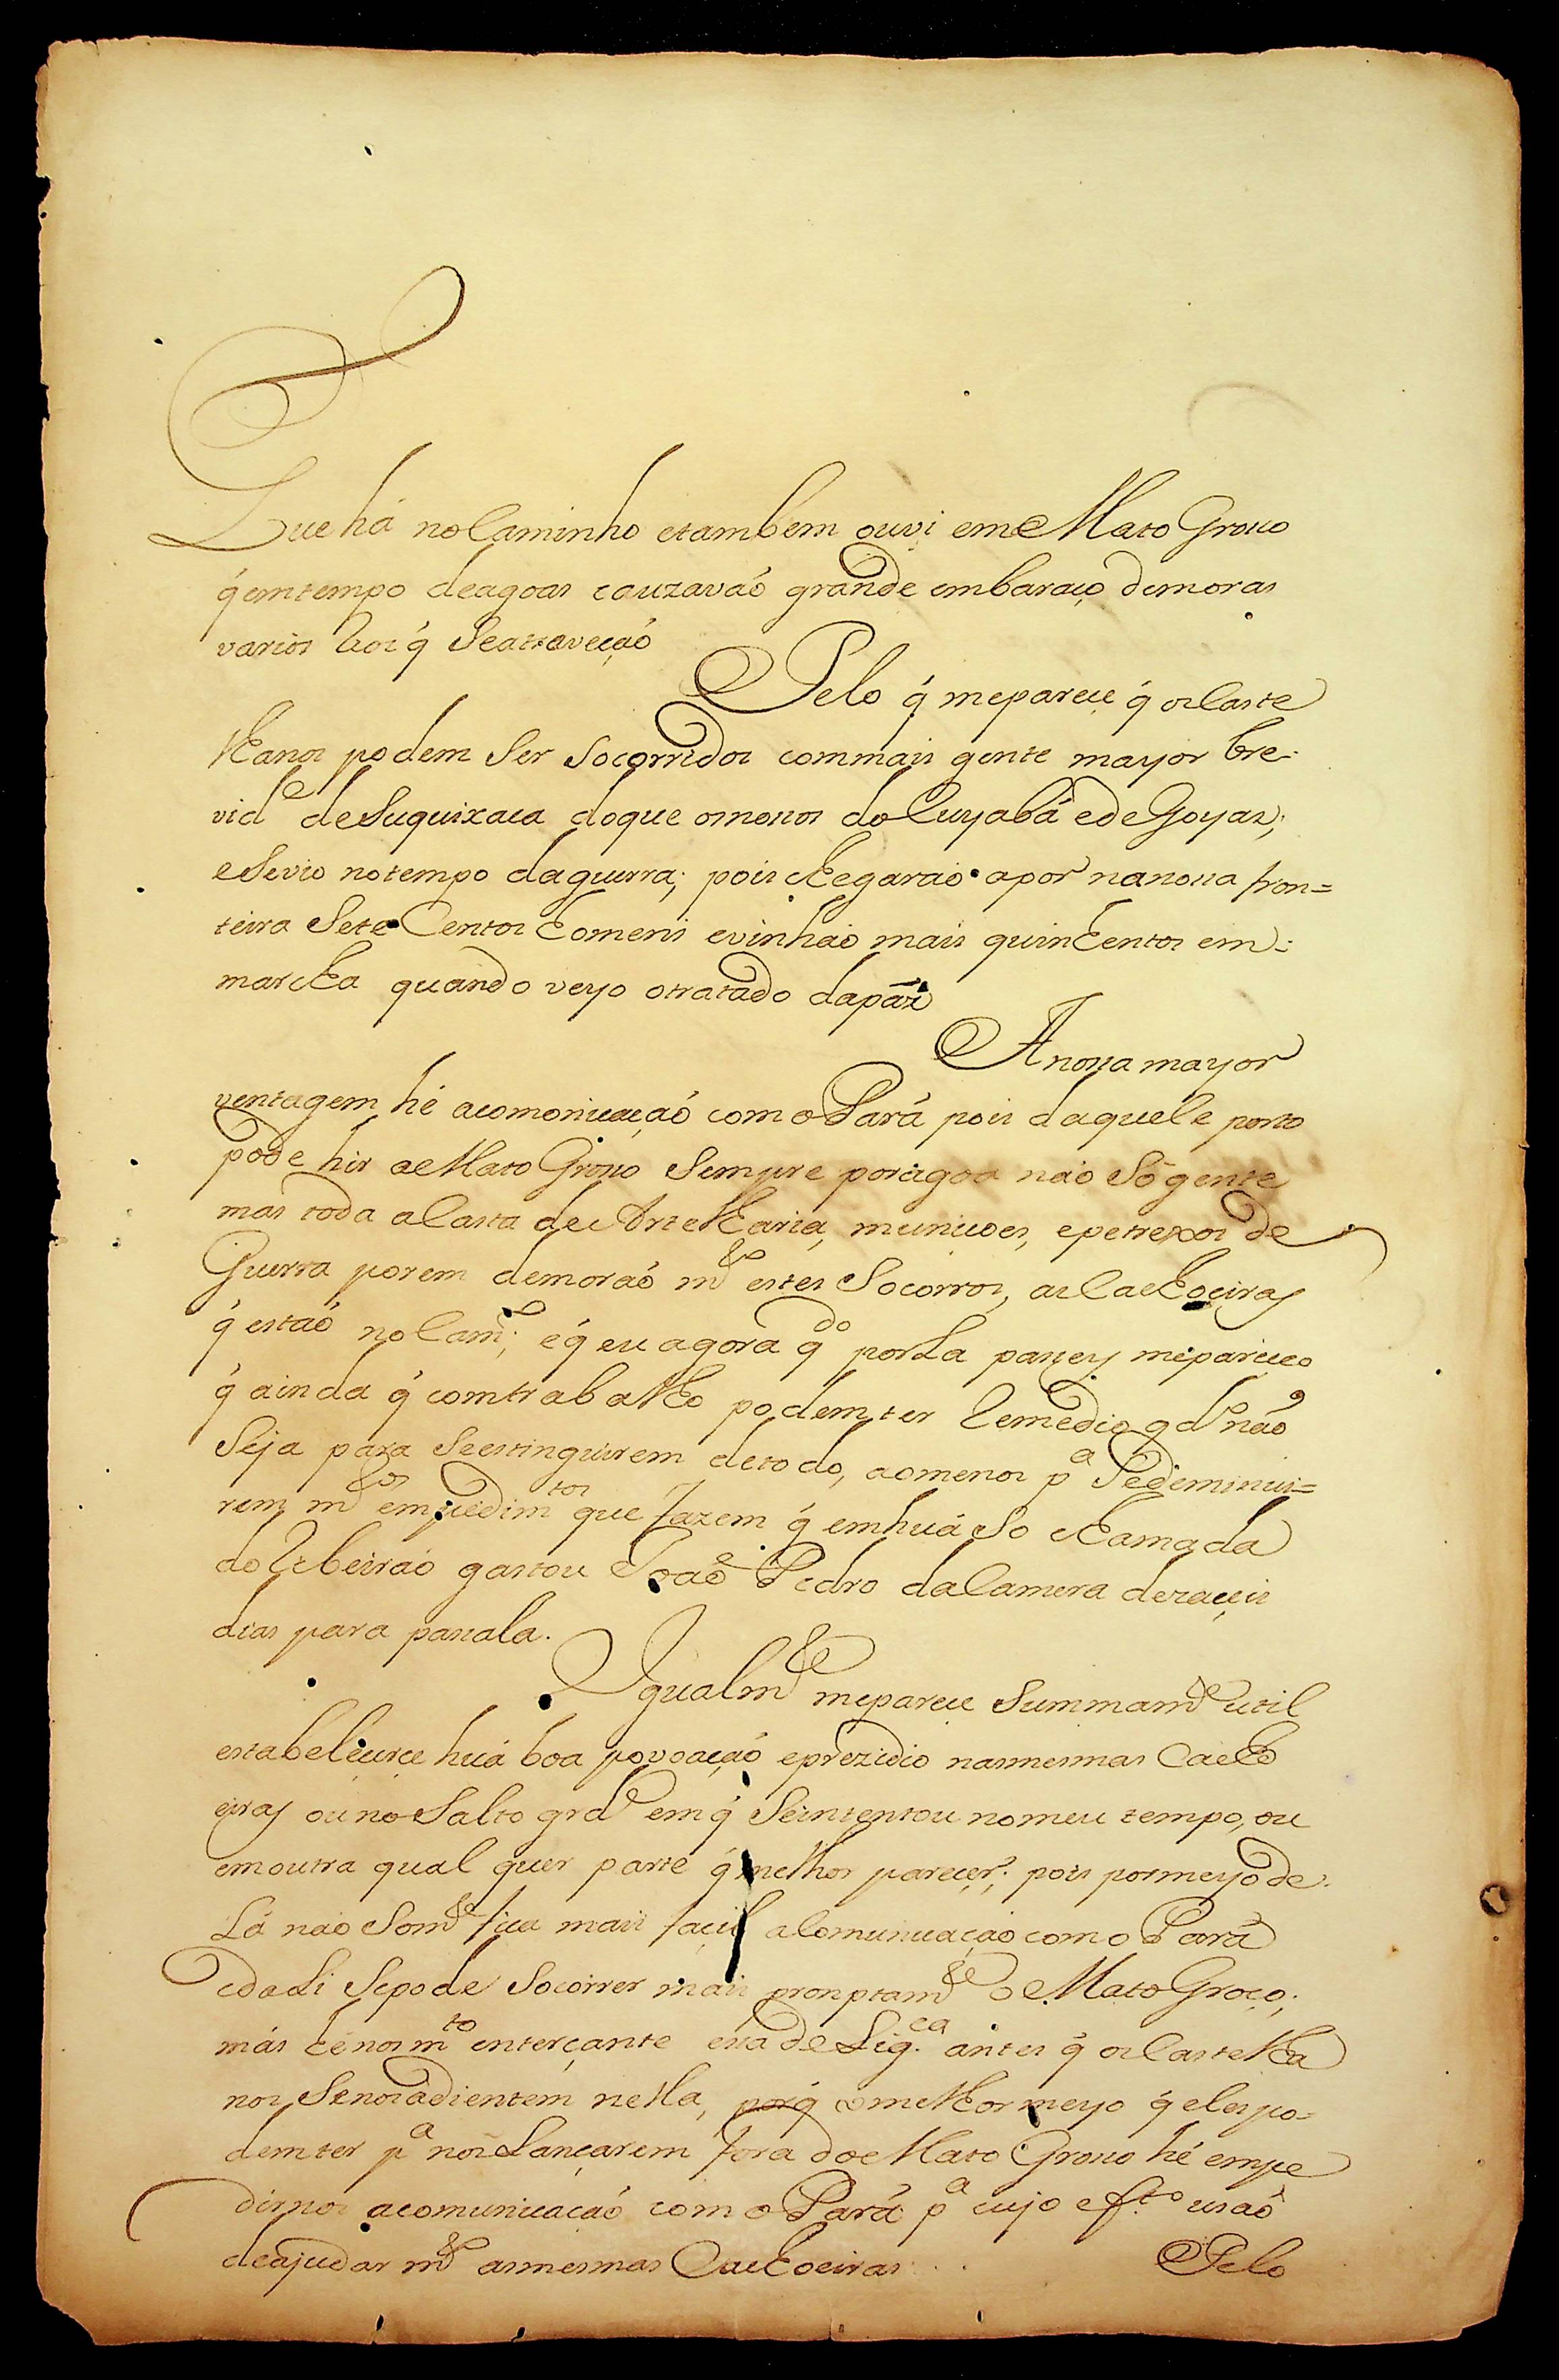 Que há no Caminho etambem ouvi em Mato Grosso
q̃ emtempo deagoas cauzavaõ grande embaraço demoras
varios Rios q̃ Seatraveçaõ
Pelo q̃ meparece q̃ osCaste
lhanos podem Ser Socorridos commais gente mayor bre-
vid.e deSuquixaca doque osnosos do Cuyabá ede Goyas;
eSevio notempo daguerra; pois chegaraõ apor nanossa fron=
teira Sete Centos homens evinhaõ mais quinhentos em-
marcha quando veyo otratado dapáz
A nossa mayor
ventagem hé acomonicaçaõ como Pará pois daquele porto
pode hir a Mato Grosso Sempre por agoa naõ Só gente
mas toda a Casta de Artelharia, municoes, epetrexos de
Guerra porem demoraõ m.to estes Socorros, as Cachoeiras
q̃ estaõ no Cam.o; eq̃ eu agora q.do porLa passey mepareceo
q̃ ainda q̃ comtrabalho podem ter Remedio q d.o naõ
Seja para Seestinguirem detodo, aomenos p.a Sedeminui=
rem m.tos empedim.tos que fazem q̃ emhuá So chamada
do Ribeiraõ gastou Joaõ Pedro da Camera dezaceis
dias para passala.
Igualm.te meparece Summam.te util
estabelecerce huá boa povoaçaõ eprezidio nasmesmas Cacho
eiras ou no Salto grd.e em q̃ Seintentou nomeu tempo, ou
emoutra qual quer parte q̃ melhor parecer; pois pormeyo de-
Lá naõ Som.te fica mais facil aComunicaçaõ como Pará
edaLi Sepode Socorrer mais promptam.te o Mato Groço;
más hénos m.to enterçante essa deLig.ca antes q̃ os Castelha
nos Senosadientem nella, porq̃ omelhor meyo q̃ eles po=
dem ter p.a nos Lançarem fora do Mato Grosso hé empe
dirnos acomunicaçaõ como Pará p.a cujo eff.to usaõ
deajudar m.to asmesmas Cachoeiras
Pelo